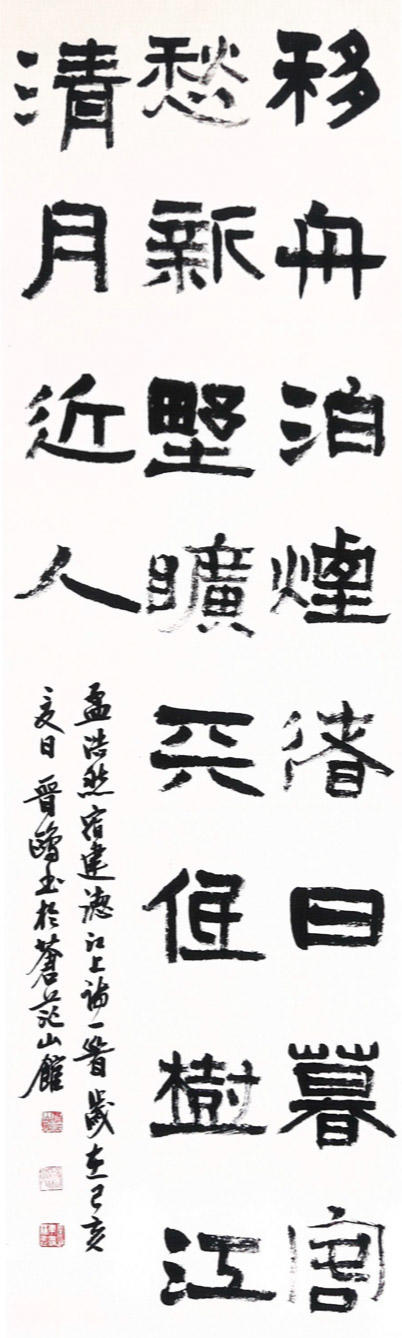 移舟泊煙渚日暮客
愁新野曠天低樹江
清月近人
孟浩然宿建德江上詩一首歲在己亥
夏日晉鷗書於蒼茫山館